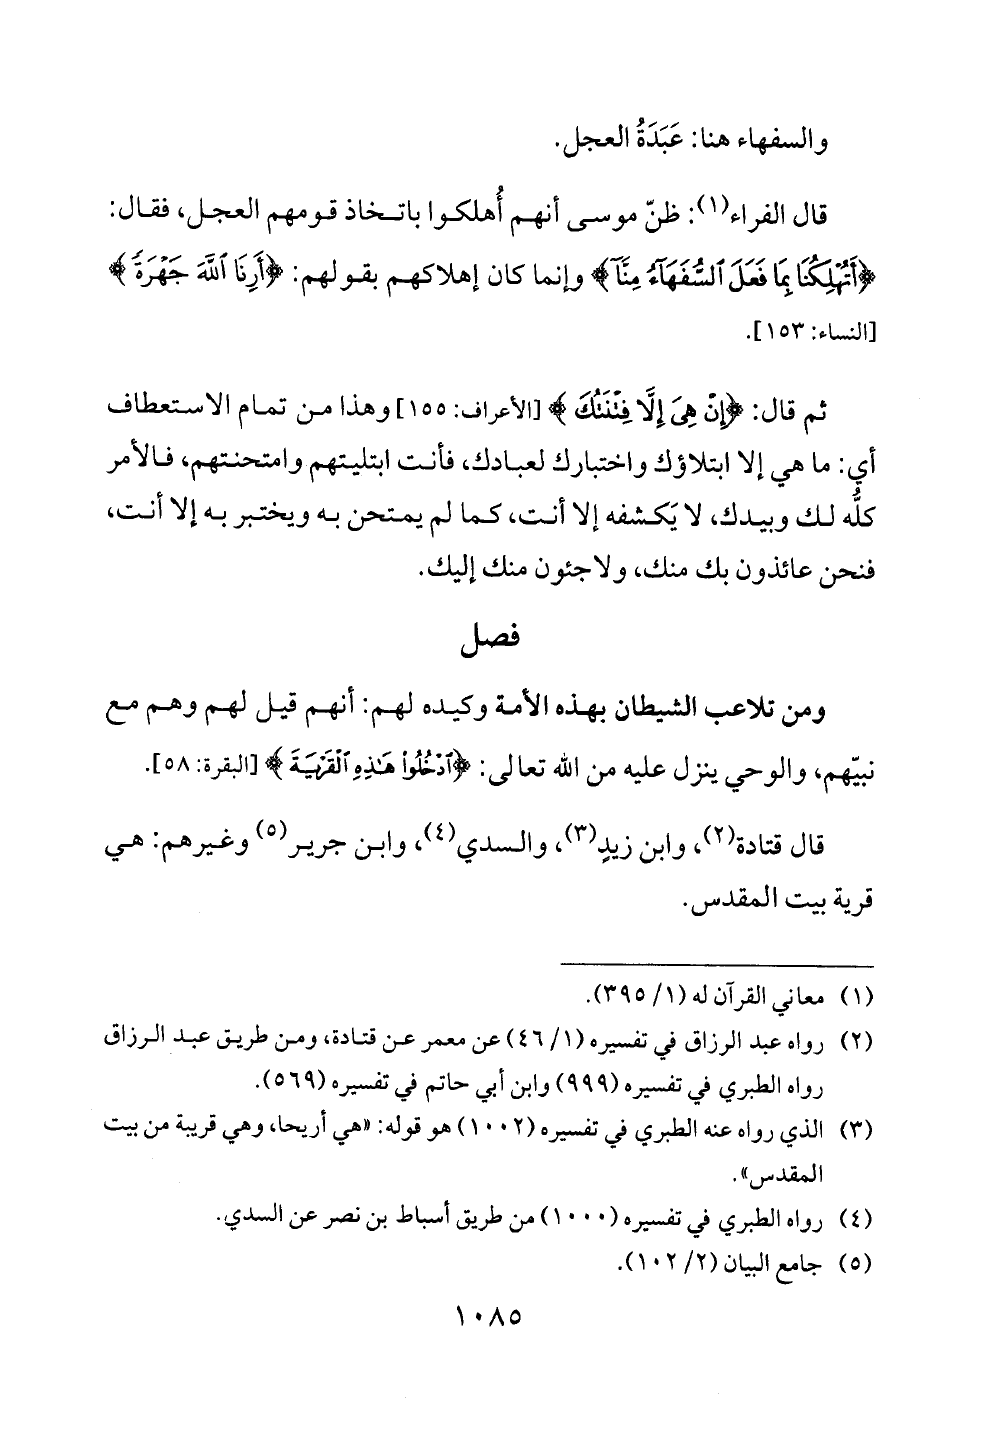 والسفهاء هنا: عَبَدَةُ العجل.
قال الفراء(١): ظنّ موسى أنهم أُهلكوا باتخاذ قومهم العجل، فقال:
﴿أَتُهْلِكُنَا بِمَا فَعَلَ ٱلسُّفَهَآءُ مِنَّآ﴾ وإنما كان إهلاكهم بقولهم: ﴿أَرِنَا ٱللَّهَ جَهْرَةً﴾
[النساء: ١٥٣].
ثم قال: ﴿إِنْ هِىَ إِلَّا فِتْنَتُكَ﴾ [الأعراف: ١٥٥] وهذا من تمام الاستعطاف
أي: ما هي إلا ابتلاؤك واختبارك لعبادك، فأنت ابتليتهم وامتحنتهم، فالأمر
كلُّه لك وبيدك، لا يَكشفه إلا أنت، كما لم يمتحن به ويختبر به إلا أنت،
فنحن عائذون بك منك، ولاجئون منك إليك.
فصل
ومن تلاعب الشيطان بهذه الأمة وكيده لهم: أنهم قيل لهم وهم مع
نبيّهم، والوحي ينزل عليه من الله تعالى: ﴿ٱدْخُلُوا۟ هَٰذِهِ ٱلْقَرْيَةَ﴾ [البقرة: ٥٨].
قال قتادة(٢)، وابن زيدٍ(٣)، والسدي(٤)، وابن جرير(٥) وغيرهم: هي
قرية بيت المقدس.
(١) معاني القرآن له (١/ ٣٩٥).
(٢) رواه عبد الرزاق في تفسيره (١/ ٤٦) عن معمر عن قتادة، ومن طريق عبد الرزاق
رواه الطبري في تفسيره (٩٩٩) وابن أبي حاتم في تفسيره (٥٦٩).
(٣) الذي رواه عنه الطبري في تفسيره (١٠٠٢) هو قوله: «هي أريحا، وهي قريبة من بيت
المقدس».
(٤) رواه الطبري في تفسيره (١٠٠٠) من طريق أسباط بن نصر عن السدي.
(٥) جامع البيان (٢/ ١٠٢).
١٠٨٥